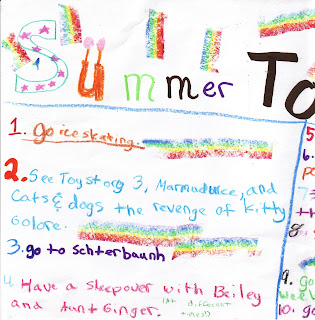 Summer To
1. go ice skating.
2. See Toy storg 3, Marmaduke, and
Cats & dogs the revenge of kitty
Golore.
3. go to Schterbaunh
4. Have a sleepover with Bailey
and aunt Ginger. (at different
times!)
5
6.
po
7
8.
9. go
wee
10. go